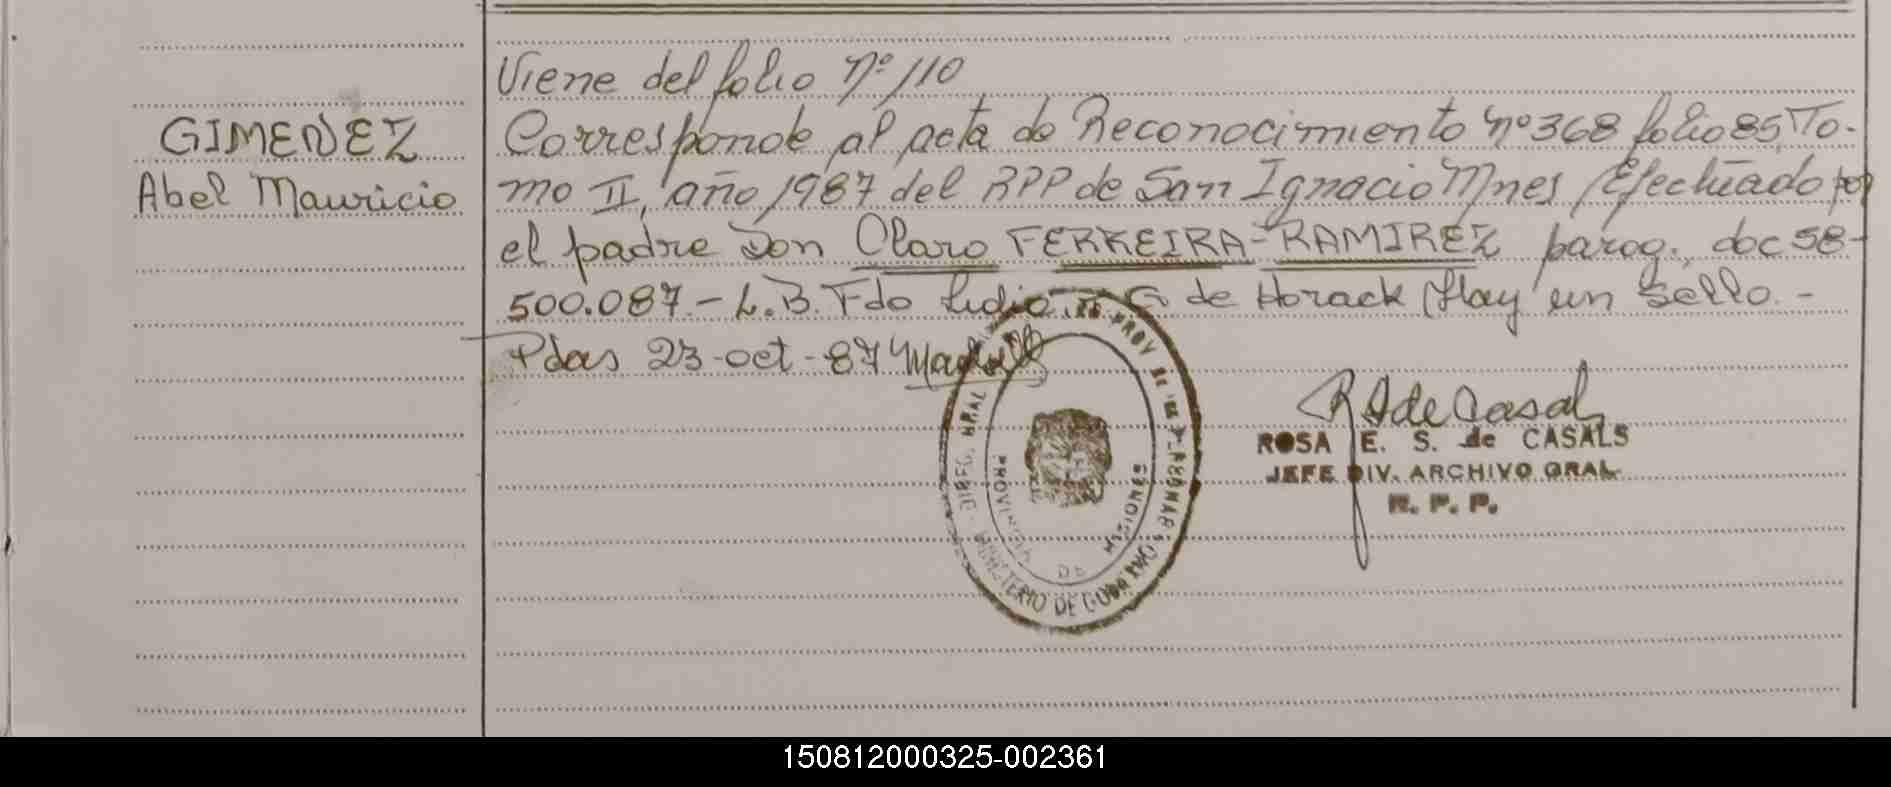 Viene del folio Nº 110
GIMENEZ
Abel Mauricio
Corresponde al acta de Reconocimiento Nº 368 folio 85, To-
mo II, año 1987 del RPP de San Ignacio Mnes Efectuado por
el padre Don Claro FERREIRA-RAMIREZ parag. doc 58-
500.087.- L.B. Fdo Lidia G de Horack Hay un Sello.-
Pdas 23-oct-87
R S de Casals
ROSA E. S. de CASALS
JEFE DIV. ARCHIVO GRAL.
R. P. P.
PROVINCIA DE MISIONES
MINISTERIO DE GOBIERNO
150812000325-002361